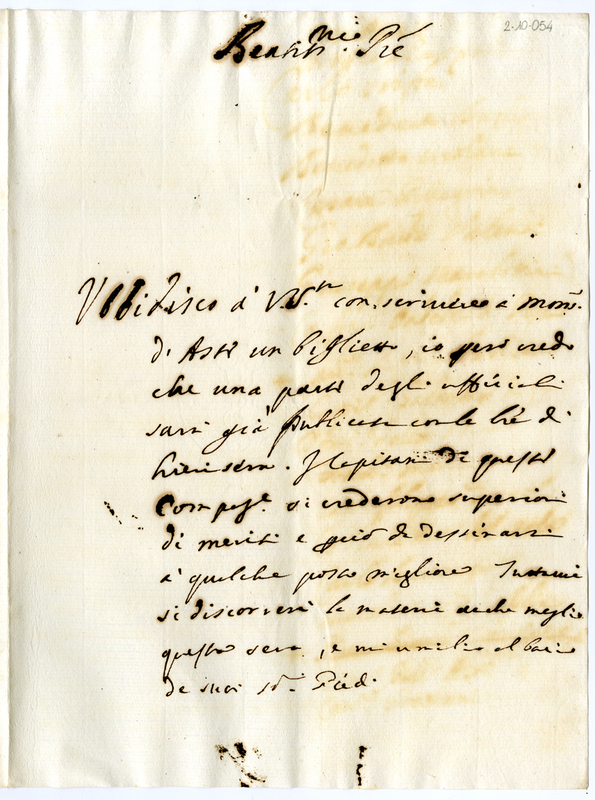 2-10-054
Beatiss.mo Pře
Ubbidisco à V.S.tà con scrivere à Mons.
d'Asti un biglietto, io però credo
che una parte degli officiali
sarà già publicata con le lře di
hieri sera. I Capitani di queste
Compag.e si crederono superiori
di meriti e perciò da destinarsi
à qualche posto migliore Tuttavia
si discorrerà la materia anche meglio
questa sera, e mi umilio al bacio
de suoi s.mi Piedi